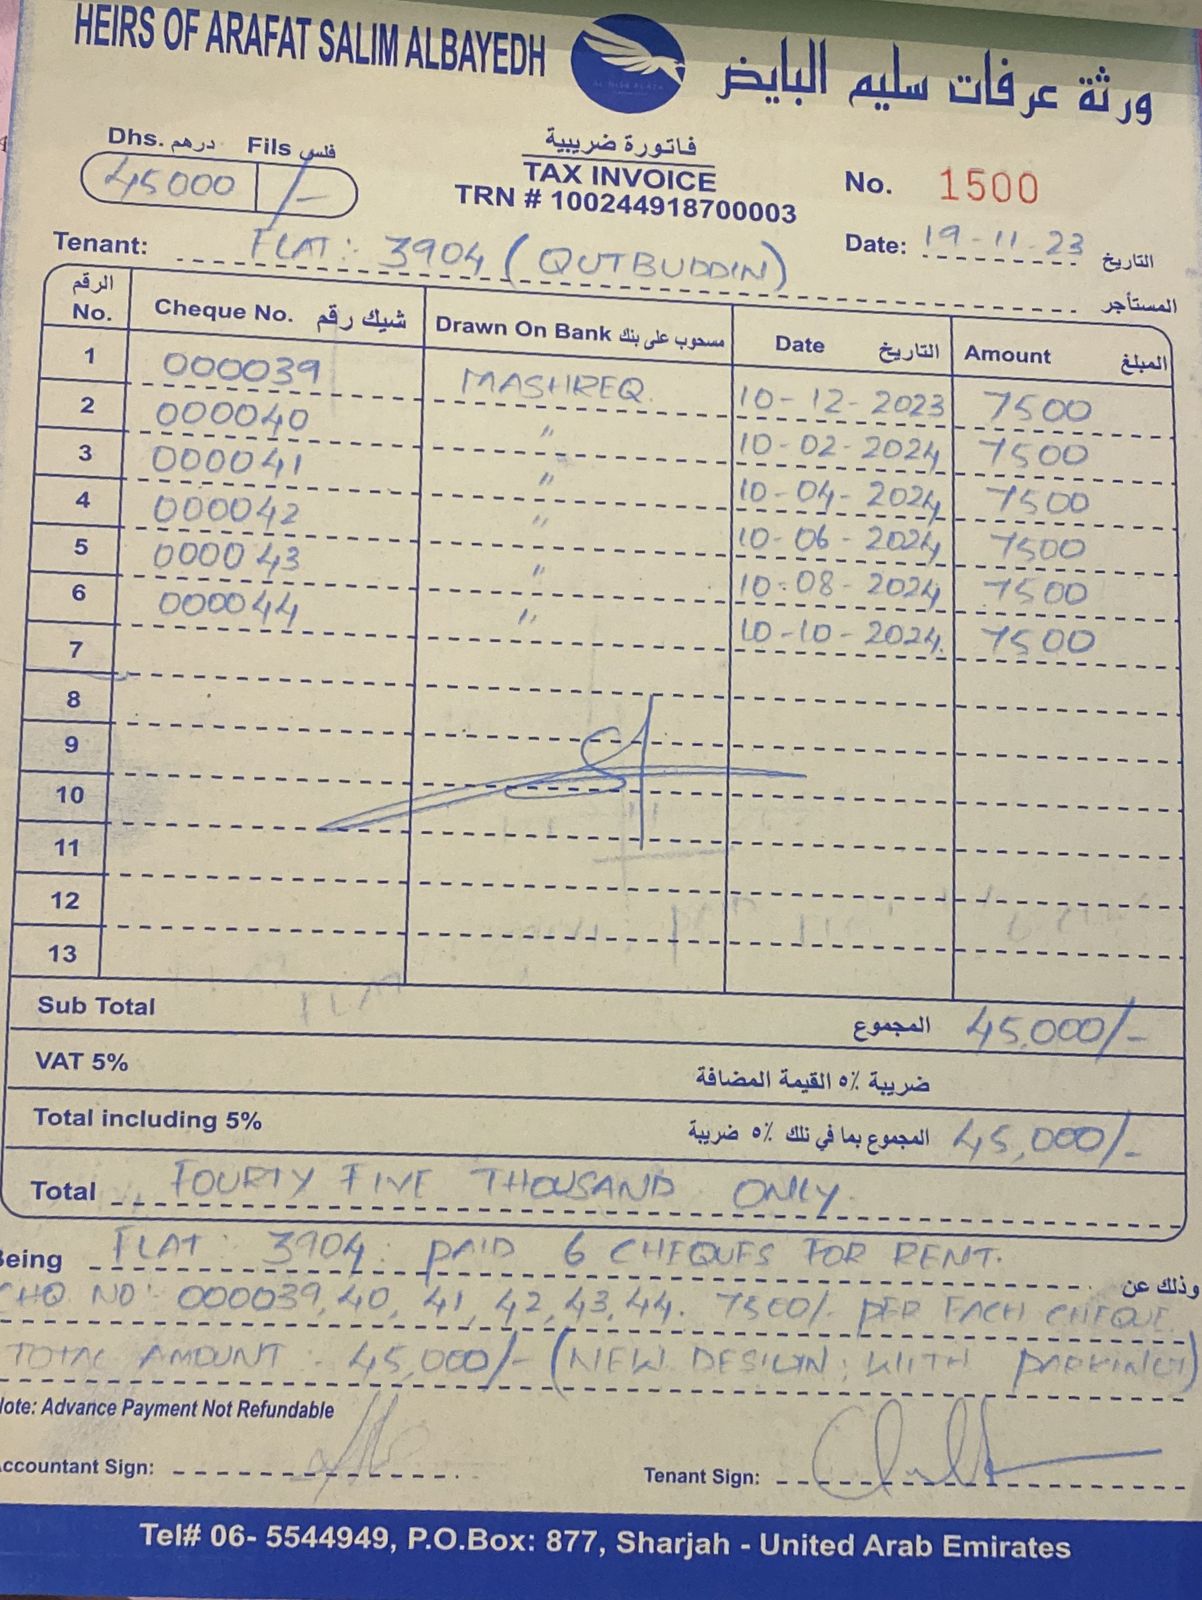 HEIRS OF ARAFAT SALIM ALBAYEDH ورثة عرفات سليم البايض
Dhs. درهم Fils فلس
45000 /-
فاتورة ضريبية
TAX INVOICE
TRN # 100244918700003
No. 1500
Date: 19-11-23 التاريخ
Tenant: FLAT: 3904 (QUTBUDDIN) المستأجر
الرقم No. Cheque No. شيك رقم Drawn On Bank مسحوب على بنك Date التاريخ Amount المبلغ
1 000039 MASHREQ 10-12-2023 7500
2 000040 " 10-02-2024 7500
3 000041 " 10-04-2024 7500
4 000042 " 10-06-2024 7500
5 000043 " 10-08-2024 7500
6 000044 " 10-10-2024. 7500
7
8
9
10
11
12
13
Sub Total المجموع 45,000/-
VAT 5% ضريبة ٥٪ القيمة المضافة
Total including 5% المجموع بما في ذلك ٥٪ ضريبة 45,000/-
Total FOURTY FIVE THOUSAND ONLY.
Being FLAT: 3904: PAID 6 CHEQUES FOR RENT. وذلك عن
CHQ NO: 000039, 40, 41, 42, 43, 44. 7500/- PER EACH CHEQUE
TOTAL AMOUNT: 45,000/- (NEW DESIGN; WITH PARKING)
Note: Advance Payment Not Refundable
Accountant Sign:
Tenant Sign:
Tel# 06- 5544949, P.O.Box: 877, Sharjah - United Arab Emirates